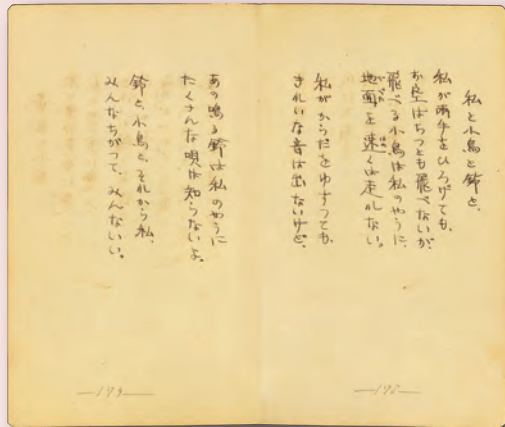 私と小鳥と鈴と、
私が両手をひろげても、
お空はちつとも飛べないが、
飛べる小鳥は私のやうに、
地面を速くは走れない。
私がからだをゆすつても、
きれいな音は出ないけど、
—178—
あの鳴る鈴は私のやうに
たくさんな唄は知らないよ。
鈴と、小鳥と、それから私、
みんなちがつて、みんないい。
—179—